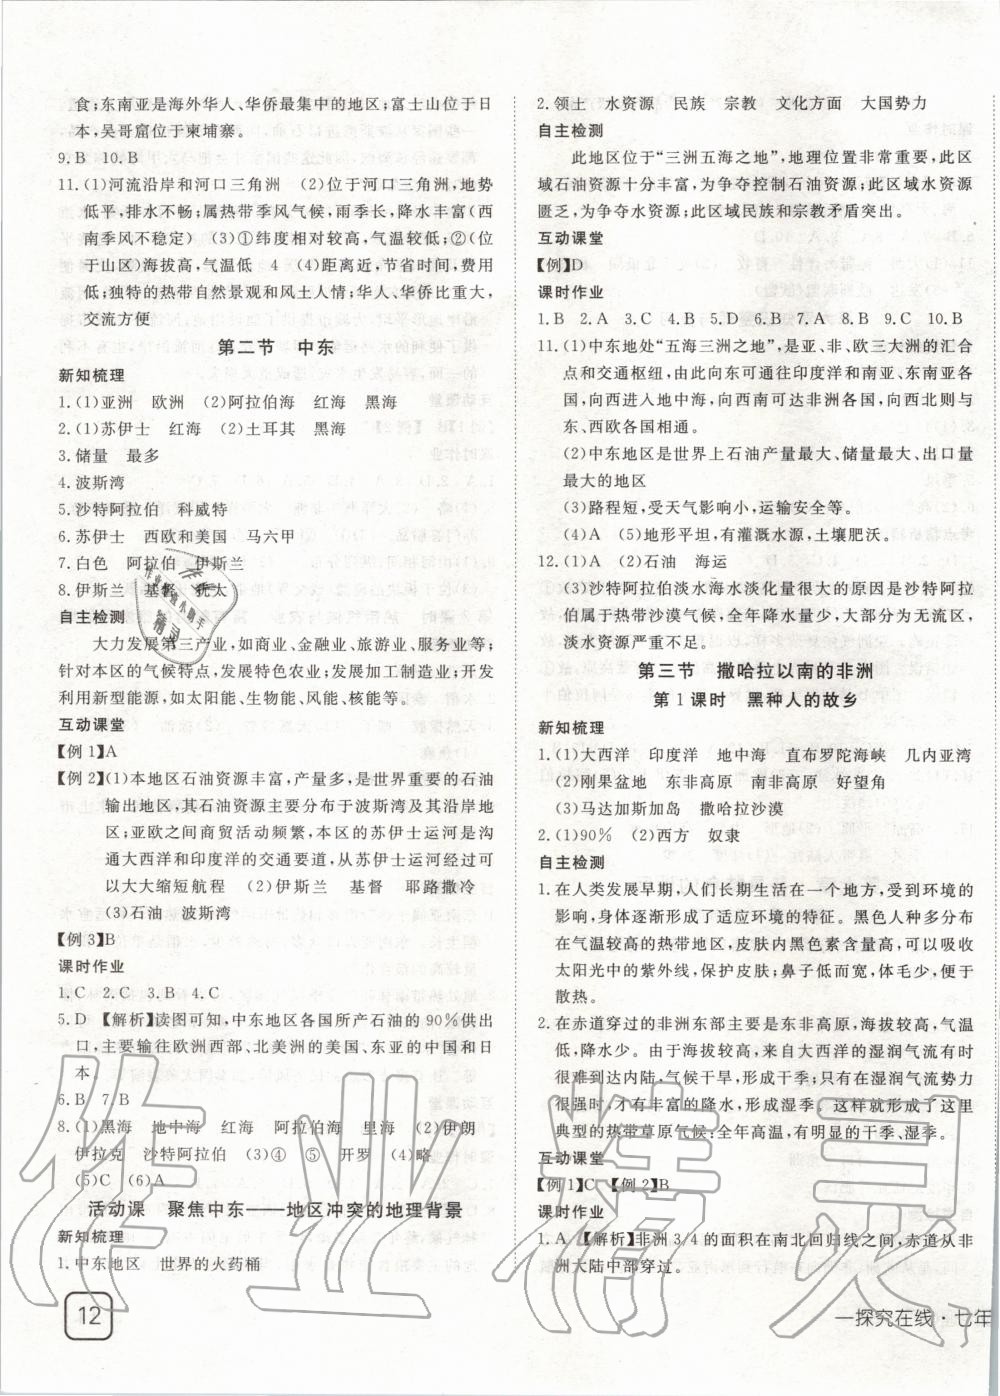 食;东南亚是海外华人、华侨最集中的地区;富士山位于日
本,吴哥窟位于柬埔寨。
9.B 10.B
11.(1)河流沿岸和河口三角洲 (2)位于河口三角洲,地势
低平,排水不畅;属热带季风气候,雨季长,降水丰富(西
南季风不稳定) (3)①纬度相对较高,气温较低;②(位
于山区)海拔高,气温低 4 (4)距离近,节省时间,费用
低;独特的热带自然景观和风土人情;华人、华侨比重大,
交流方便
第二节 中东
新知梳理
1.(1)亚洲 欧洲 (2)阿拉伯海 红海 黑海
2.(1)苏伊士 红海 (2)土耳其 黑海
3.储量 最多
4.波斯湾
5.沙特阿拉伯 科威特
6.苏伊士 西欧和美国 马六甲
7.白色 阿拉伯 伊斯兰
8.伊斯兰 基督 犹太
自主检测
大力发展第三产业,如商业、金融业、旅游业、服务业等;
针对本区的气候特点,发展特色农业;发展加工制造业;开发
利用新型能源,如太阳能、生物能、风能、核能等。
互动课堂
【例1】A
【例2】(1)本地区石油资源丰富,产量多,是世界重要的石油
输出地区,其石油资源主要分布于波斯湾及其沿岸地
区;亚欧之间商贸活动频繁,本区的苏伊士运河是沟
通大西洋和印度洋的要道,从苏伊士运河经过可
以大大缩短航程 (2)伊斯兰 基督 耶路撒冷
(3)石油 波斯湾
【例3】B
课时作业
1.C 2.C 3.B 4.C
5.D 【解析】读图可知,中东地区各国所产石油的90%供出
口,主要输往欧洲西部、北美洲的美国、东亚的中国和日
本。
6.B 7.B
8.(1)黑海 地中海 红海 阿拉伯海 里海 (2)伊朗
伊拉克 沙特阿拉伯 (3)④ ⑤ 开罗 (4)略
(5)C (6)A
活动课 聚焦中东——地区冲突的地理背景
新知梳理
1.中东地区 世界的火药桶
12
2.领土 水资源 民族 宗教 文化方面 大国势力
自主检测
此地区位于“三洲五海之地”,地理位置非常重要,此区
域石油资源十分丰富,为争夺控制石油资源;此区域水资源
匮乏,为争夺水资源;此区域民族和宗教矛盾突出。
互动课堂
【例】D
课时作业
1.B 2.A 3.C 4.B 5.D 6.B 7.A 8.B 9.C 10.B
11.(1)中东地处“五海三洲之地”,是亚、非、欧三大洲的汇合
点和交通枢纽,由此向东可通往印度洋和南亚、东南亚各
国,向西进入地中海,向西南可达非洲各国,向西北则与
东、西欧各国相通。
(2)中东地区是世界上石油产量最大、储量最大、出口量
最大的地区
(3)路程短,受天气影响小,运输安全等。
(4)A (5)地形平坦,有灌溉水源,土壤肥沃。
12.(1)A (2)石油 海运
(3)沙特阿拉伯淡水海水淡化量很大的原因是沙特阿拉
伯属于热带沙漠气候,全年降水量少,大部分为无流区,
淡水资源严重不足。
第三节 撒哈拉以南的非洲
第1课时 黑种人的故乡
新知梳理
1.(1)大西洋 印度洋 地中海 直布罗陀海峡 几内亚湾
(2)刚果盆地 东非高原 南非高原 好望角
(3)马达加斯加岛 撒哈拉沙漠
2.(1)90% (2)西方 奴隶
自主检测
1.在人类发展早期,人们长期生活在一个地方,受到环境的
影响,身体逐渐形成了适应环境的特征。黑色人种多分布
在气温较高的热带地区,皮肤内黑色素含量高,可以吸收
太阳光中的紫外线,保护皮肤;鼻子低而宽,体毛少,便于
散热。
2.在赤道穿过的非洲东部主要是东非高原,海拔较高,气温
低,降水少。由于海拔较高,来自大西洋的湿润气流有时
很难到达内陆,气候干旱,形成干季;只有在湿润气流势力
很强时,才有丰富的降水,形成湿季。这样就形成了这里
典型的热带草原气候:全年高温,有明显的干、湿季。
互动课堂
【例1】C 【例2】B
课时作业
1.A 【解析】非洲3/4的面积在南北回归线之间,赤道从非
洲大陆中部穿过。
一探究在线·七年
作业精灵